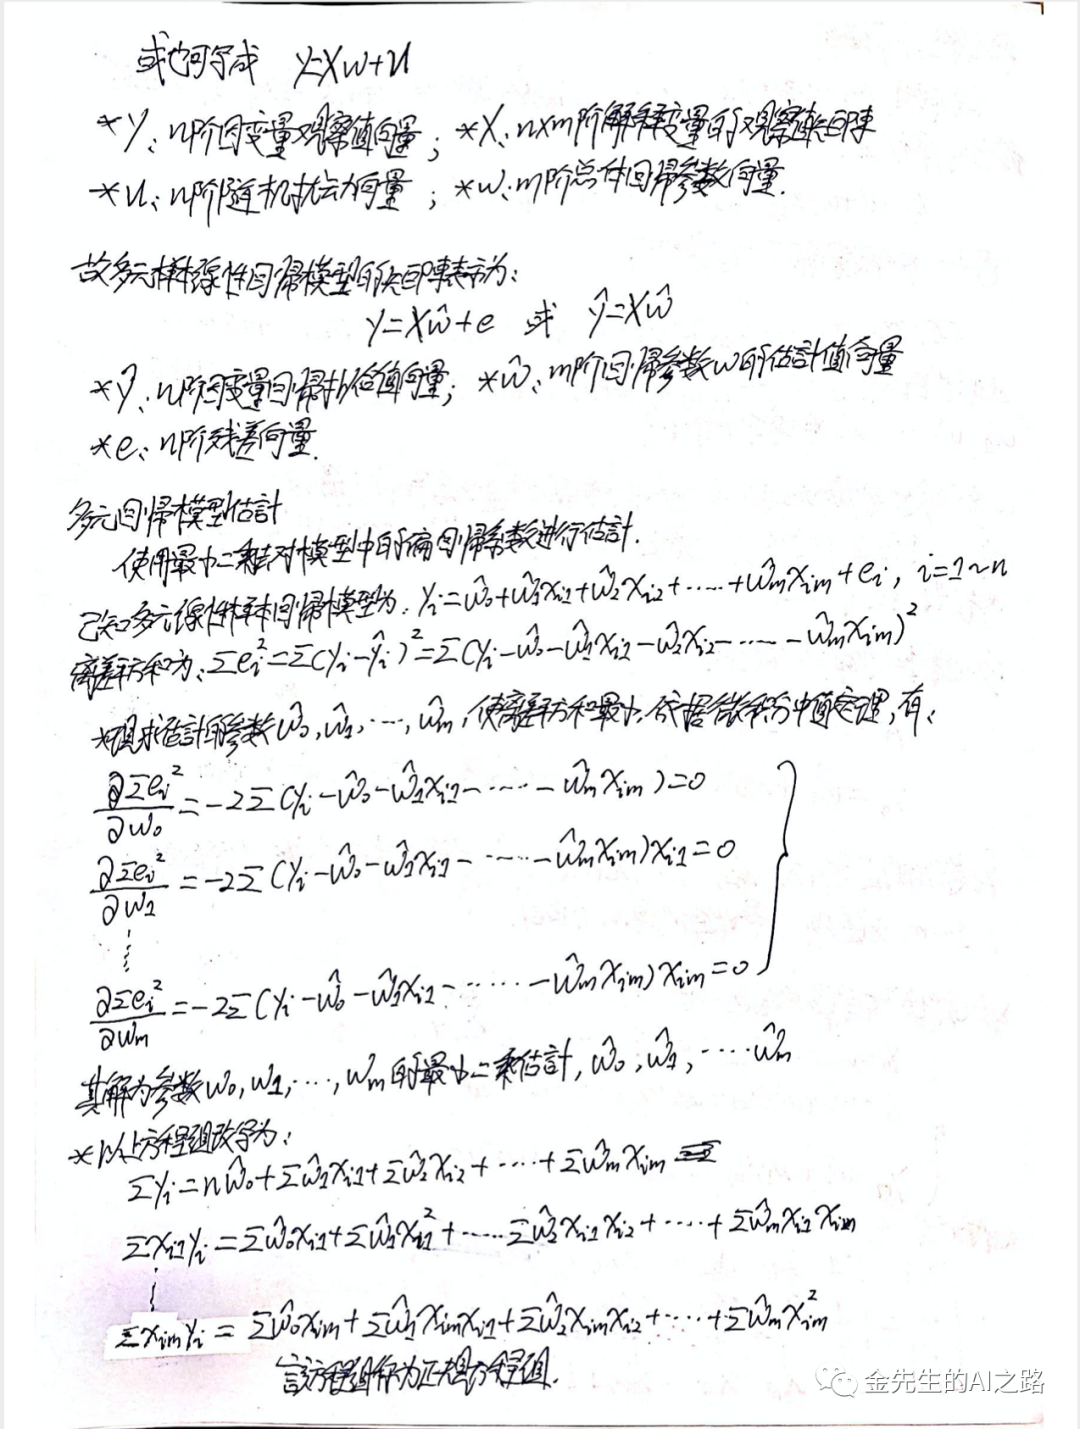 或也可写成 y=Xw+u
*y:n阶因变量观察值向量; *X:n×m阶解释变量的观察值矩阵
*u:n阶随机扰动向量; *w:m阶总体回归参数向量.
故多元样本線性回归模型的矩阵表示为:
y=Xŵ+e 或 ŷ=Xŵ
*ŷ:n阶因变量回归拟估值向量; *ŵ:m阶回归参数w的估計值向量
*e:n阶残差向量.
多元回归模型估計
使用最小二乘法对模型中的偏回归系数进行估計.
已知多元線性样本回归模型为: yi=ŵ0+ŵ1xi1+ŵ2xi2+……+ŵmxim+ei, i=1~n
离差平方和为:Σei²=Σ(yi-ŷi)²=Σ(yi-ŵ0-ŵ1xi1-ŵ2xi2-……-ŵmxim)²
*現求估計的参数ŵ0,ŵ1,…,ŵm,使离差平方和最小,依据微积分中值定理,有:
∂Σei²/∂w0=-2Σ(yi-ŵ0-ŵ1xi1-……-ŵmxim)=0
∂Σei²/∂w1=-2Σ(yi-ŵ0-ŵ1xi1-……-ŵmxim)xi1=0
⋮
∂Σei²/∂wm=-2Σ(yi-ŵ0-ŵ1xi1-……-ŵmxim)xim=0
其解为参数w0,w1,…,wm的最小二乘估計,ŵ0,ŵ1,……ŵm
*以上方程组改写为:
Σyi=nŵ0+Σŵ1xi1+Σŵ2xi2+……+Σŵmxim
Σxi1yi=Σŵ0xi1+Σŵ1xi1²+……Σŵ2xi1xi2+……+Σŵmxi1xim
⋮
Σximyi=Σŵ0xim+Σŵ1ximxi1+Σŵ2ximxi2+……+Σŵmxim²
該方程组称为正規方程组.
金先生的AI之路